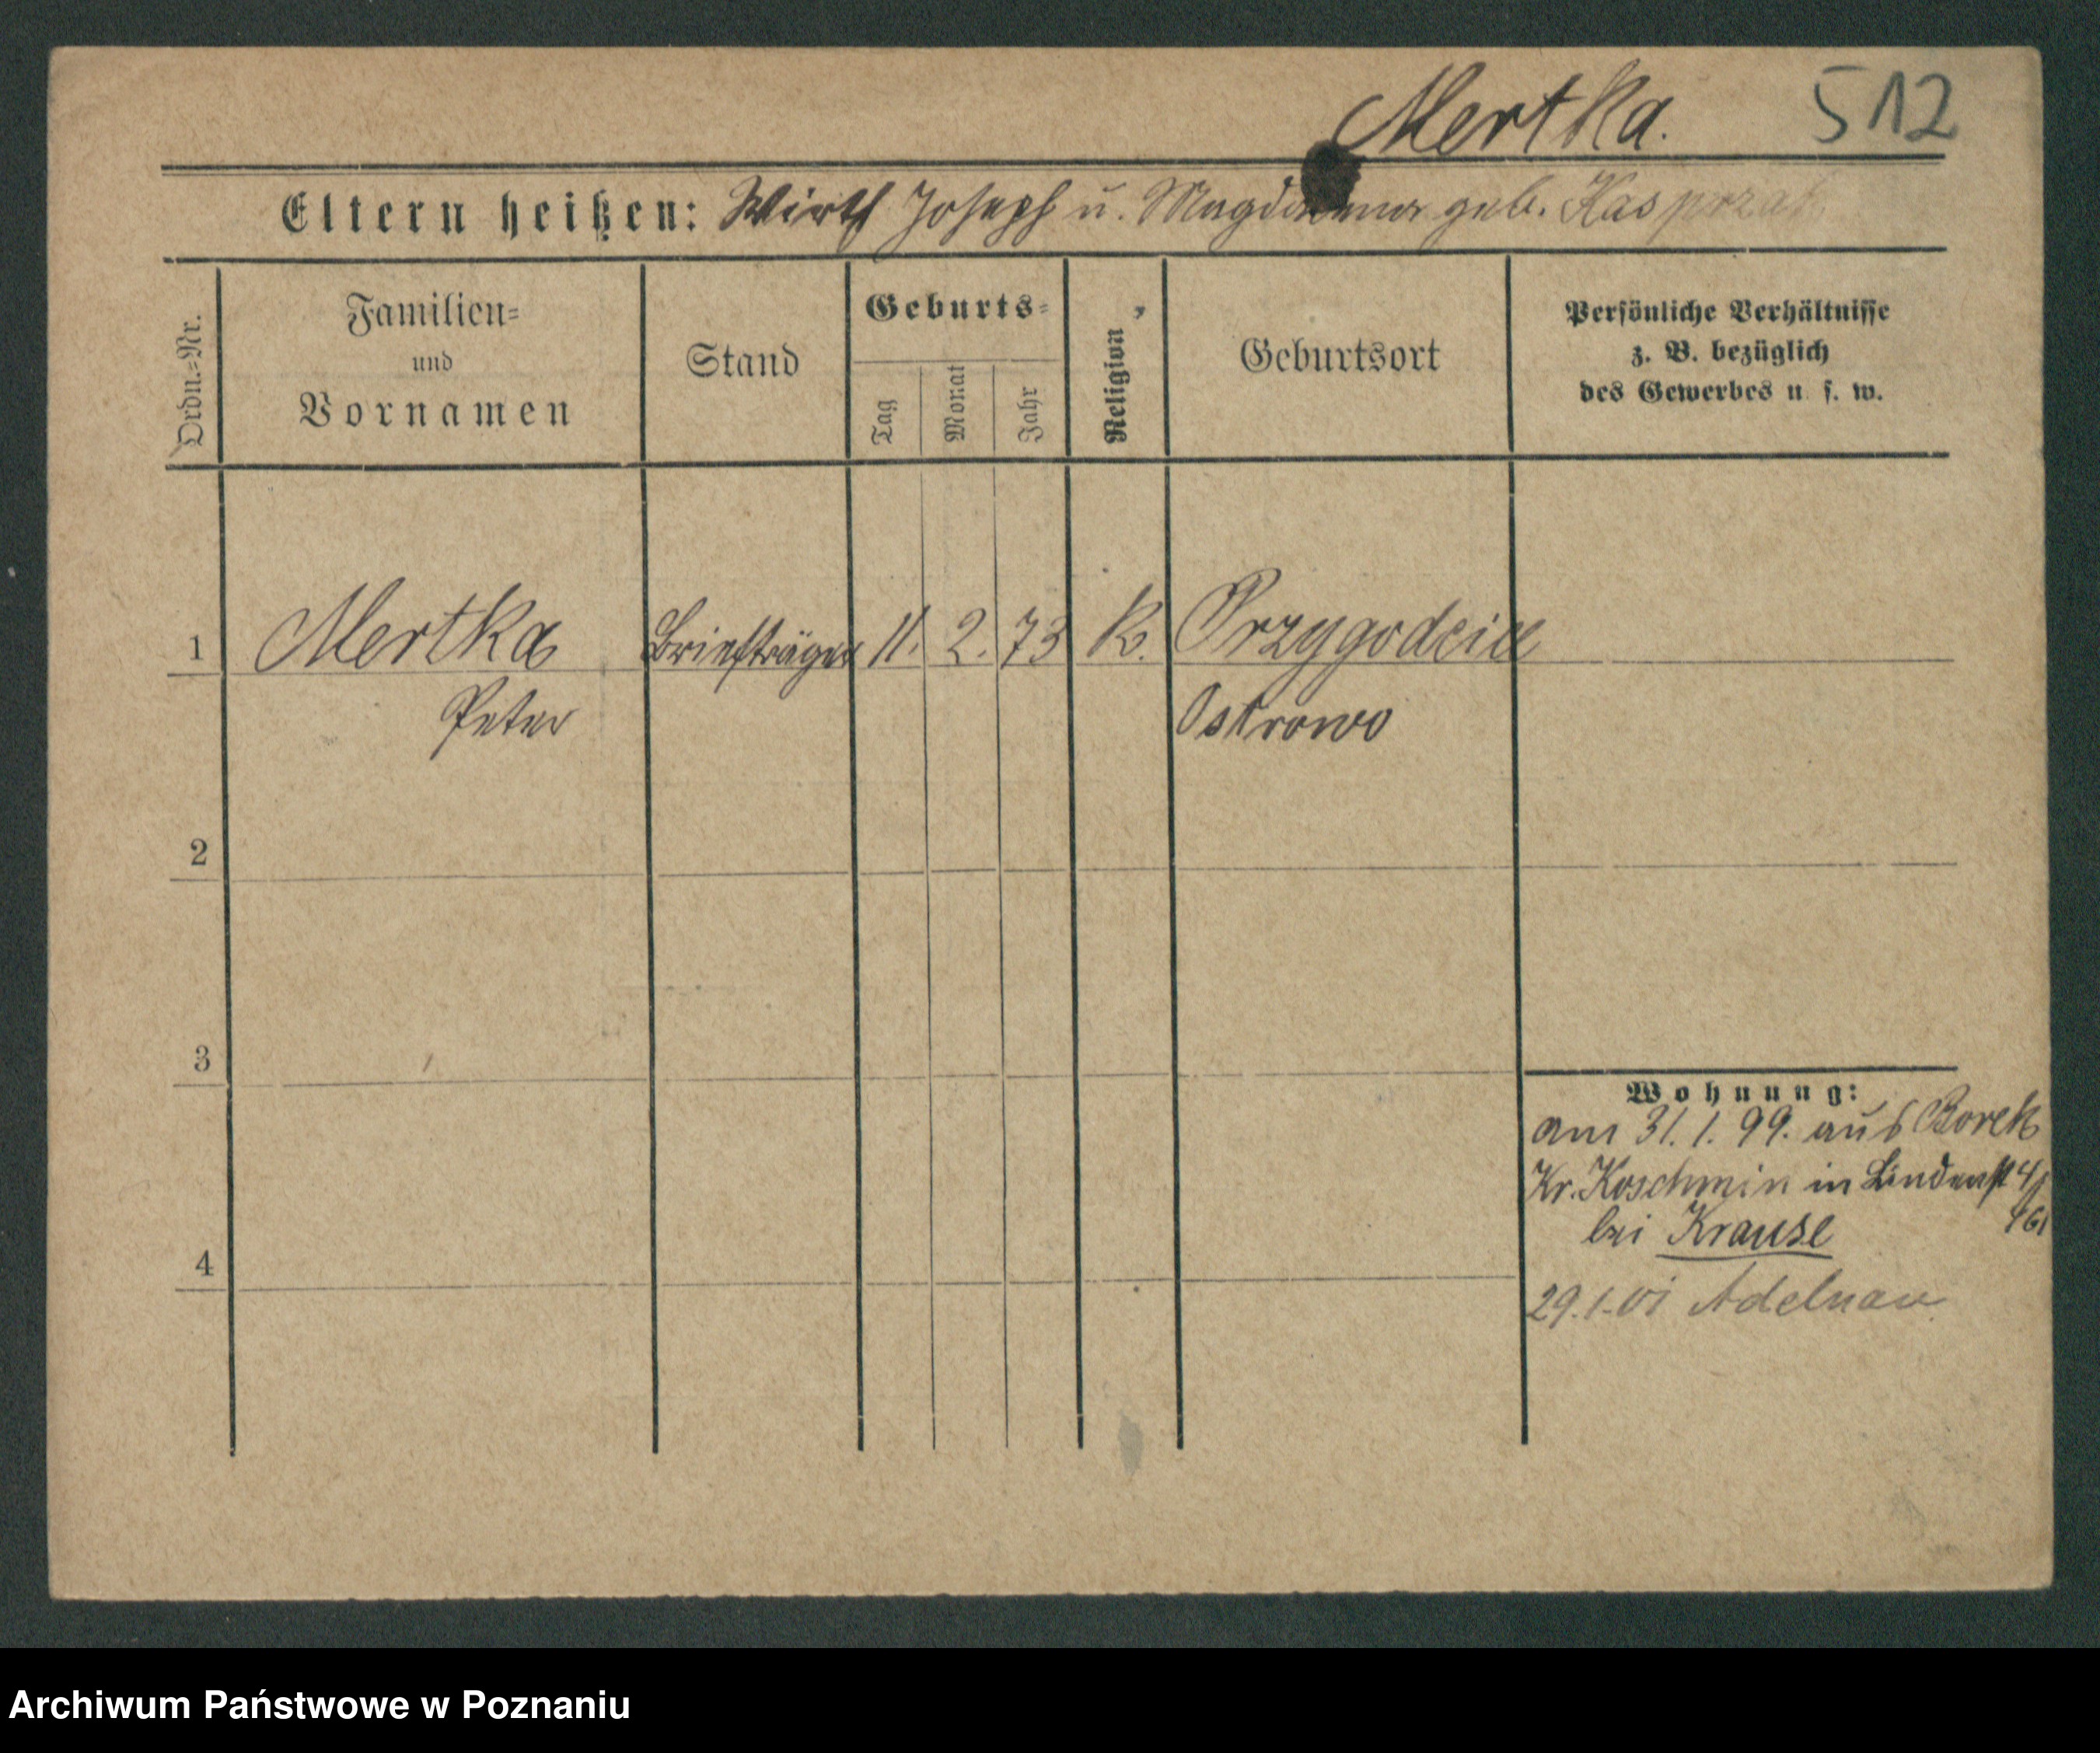 Mertka. 512
Eltern heißen: Wirth Joseph u. Magdalena geb. Kasprzak
Ordn.=Nr.
Familien=
und
Vornamen
Stand
Geburts=
Tag
Monat
Jahr
Religion
Geburtsort
Persönliche Verhältnisse
z. B. bezüglich
des Gewerbes u. s. w.
1 Mertka Briefträger 11. 2. 73 K. Przygodcice
Peter Ostrowo
2
3
Wohnung:
am 31. 1. 99. aus Borek
Kr. Koschmin in Lindenst 4/
bei Krause
4
29.1.01 Adelnau
Archiwum Państwowe w Poznaniu